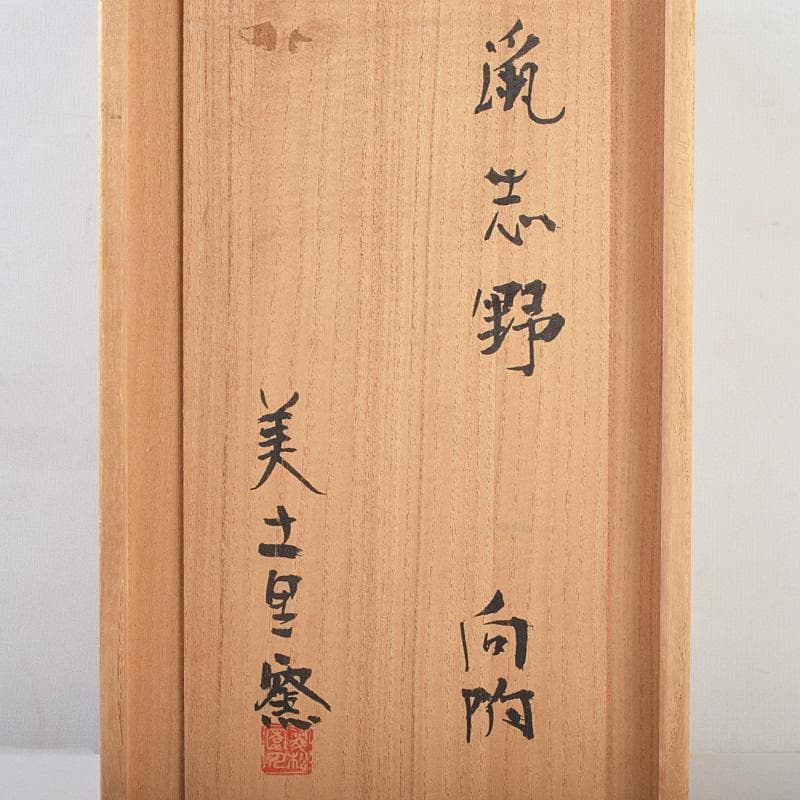 鼠志野 向附
美土里窯